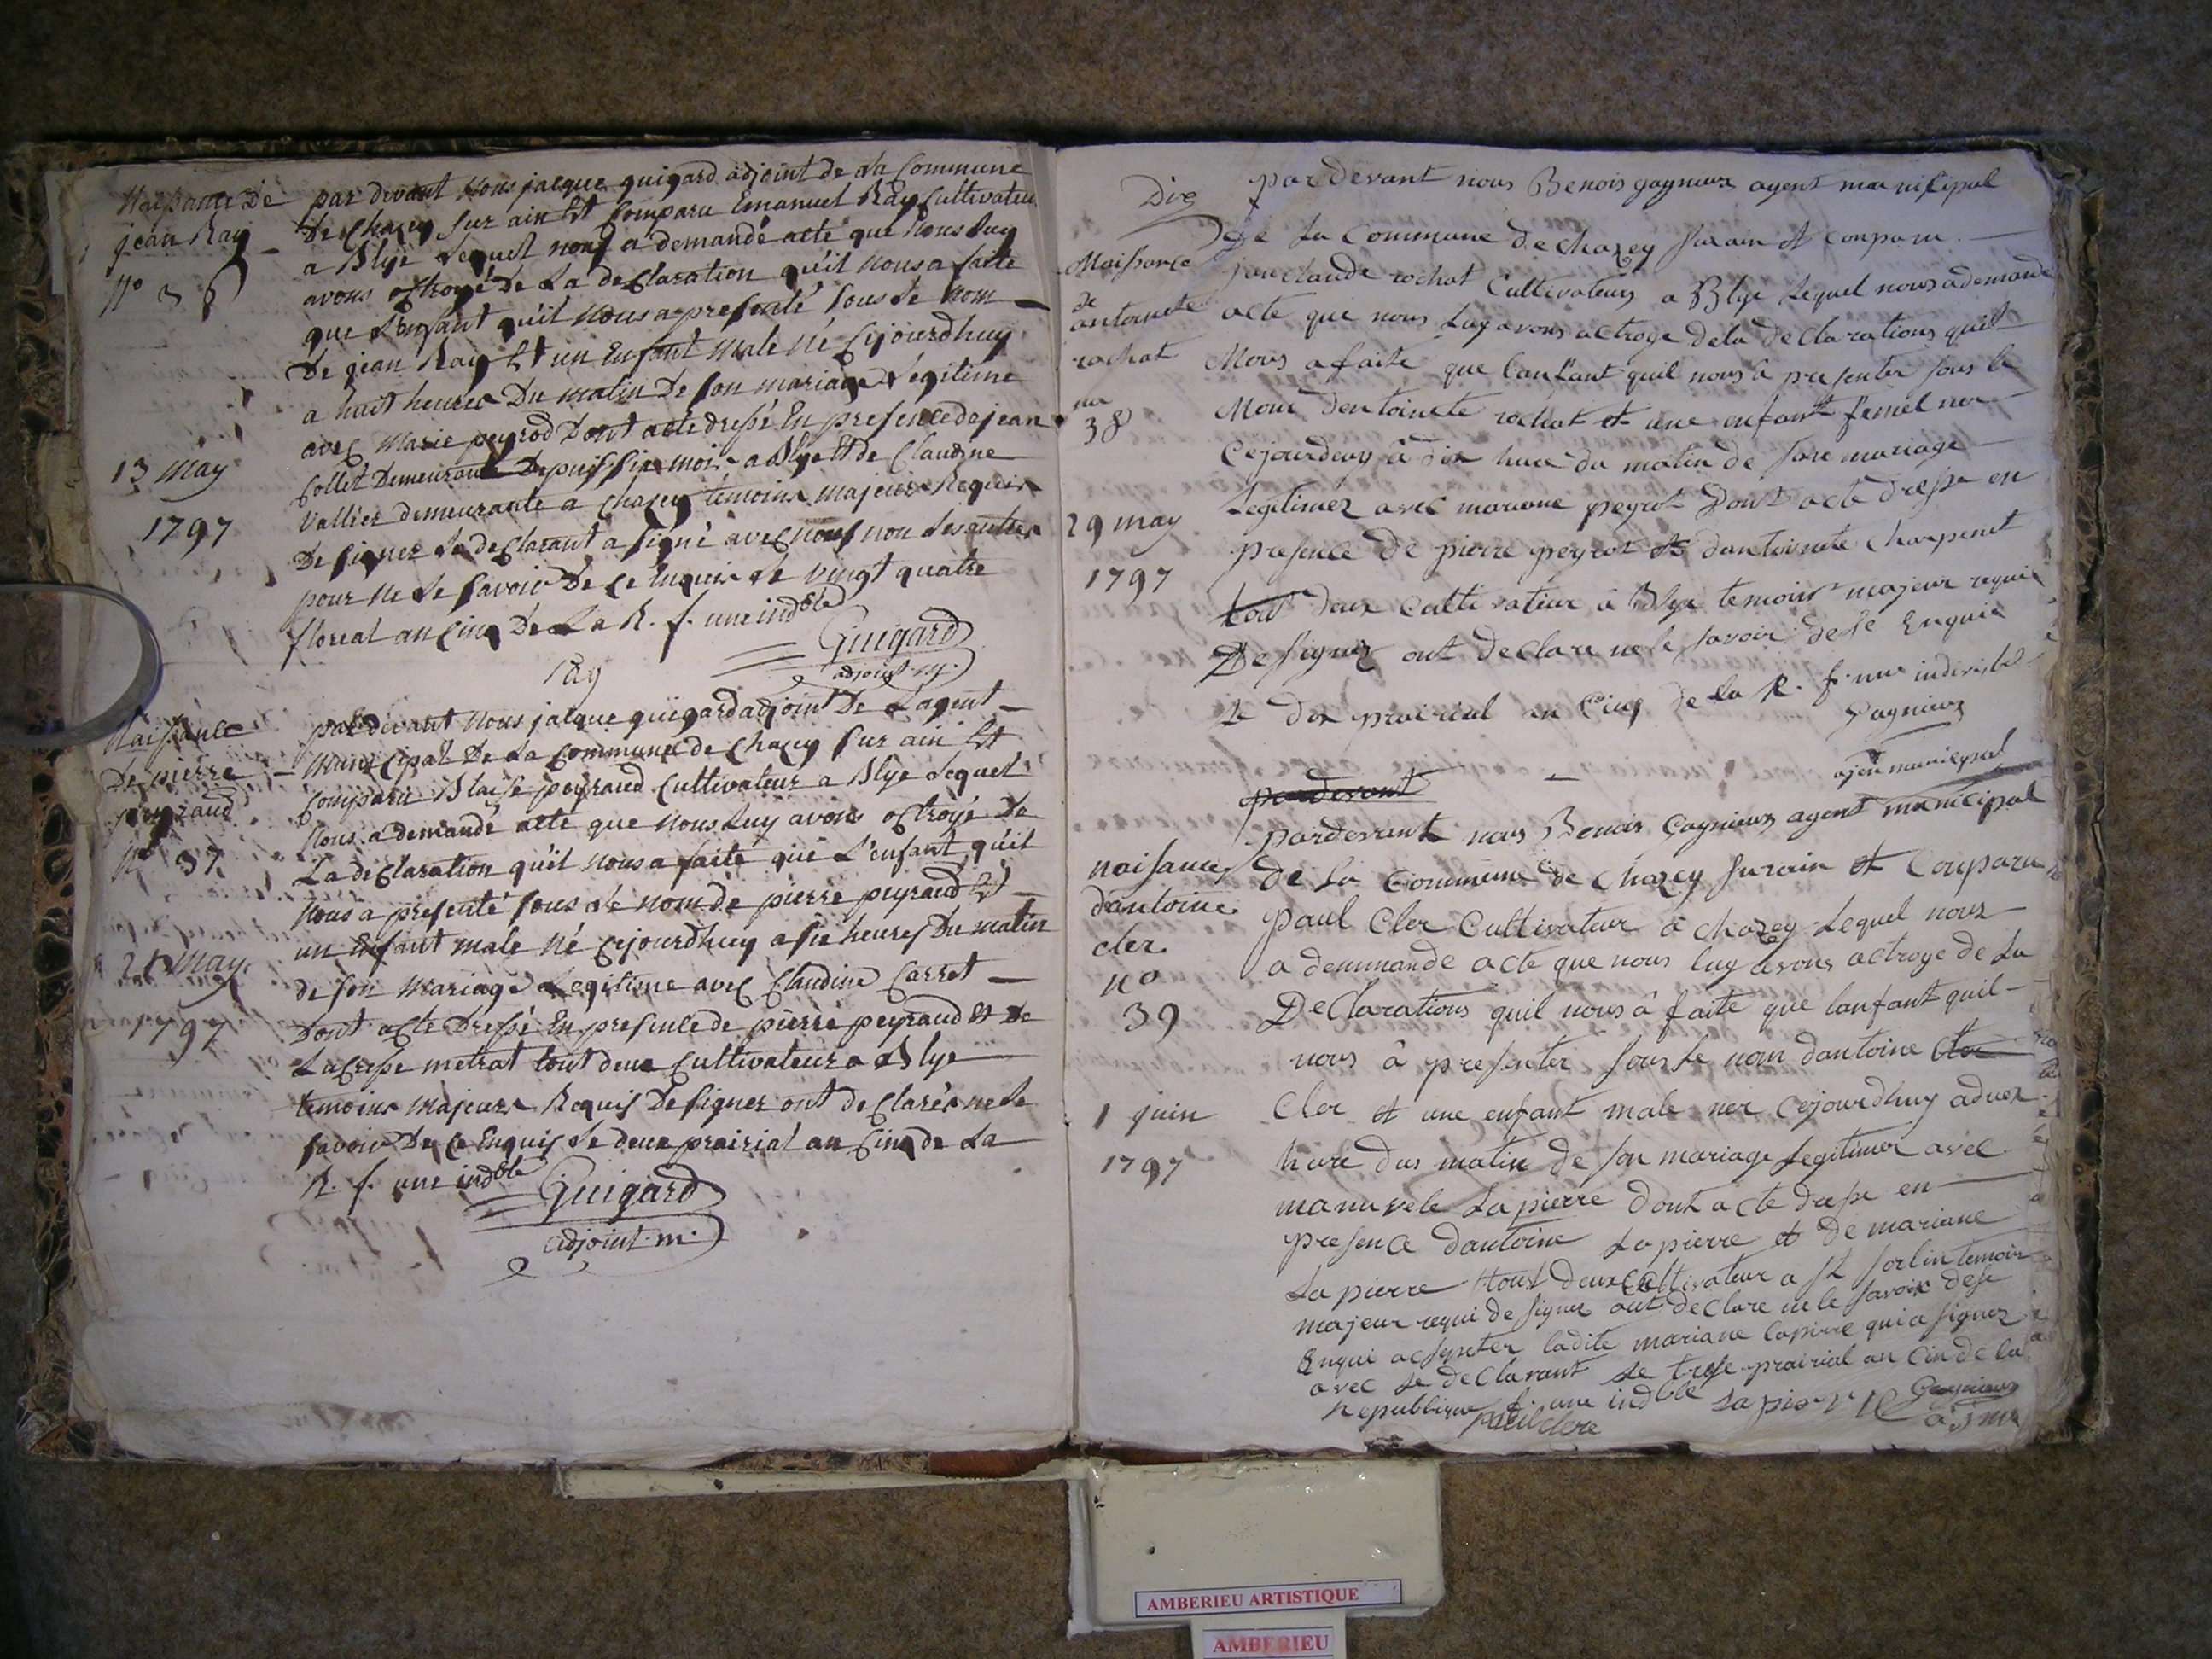 Naissance de
jean Ray
N° 36
13 may
1797
par devant Nous jacque guigard adjoint de La Commune
De Chazey sur ain Est Comparu Emanuel Ray Cultivateur
a Blye Lequel nous a demandé acte que Nous Luy
avons octroyé De La declaration qu'il Nous a faite
que L'enfant qu'il Nous a presenté sous Le Nom
De jean Ray Est un Enfant Male Né Cejourdhuy
a huit heures Du matin De son mariage Légitime
avec Marie peyrod Dont acte dressé En presence de jean
Collet Demeurant Depuis six mois a Blye Et de Claudine
Vallier demeurante a Chazey temoins majeurs Requis
De signer Le declarant a signé avec nous non Les autres
pour Ne Le savoir De Ce Enquis Le vingt quatre
floreal an Cinq De La R. f. une indble
Ray
Guigard
adjoint m.
Naissance
De pierre
peyraud
N° 37
21 May
1797
par devant Nous jacque guigard adjoint De L'agent
Municipal De La Commune de Chazey sur ain Est
Comparu Blaise peyraud Cultivateur a Blye Lequel
Nous a demandé acte que Nous Luy avons octroyé De
La declaration qu'il Nous a faite que L'enfant qu'il
Nous a presenté sous Le nom de pierre peyraud Est
un Enfant male Né Cejourdhuy a six heures Du matin
de son Mariage Legitime avec Claudine Carret
Dont acte Dressé En presence de pierre peyraud Et De
Lucresse metrat tout deux Cultivateur a Blye
temoins Majeurs Requis De signer ont declarés ne Le
savoir De Ce Enquis Le deux prairial an Cinq de La
R. f. une indble
Guigard
adjoint m.
Dix
Naissance
de
antoinete
rochat
no
38
29 may
1797
par devant nous Benois gagnieux agent municipal
De La Commune de Chazey surain et conparu
jan claude rochat Cultivateurs a Blye Lequel nous a demande
acte que nous Luy avons actroye dela declarations quil
Nous a faite que Lanfant quil nous a presenter sous le
Nom dentoinete rochat et une enfant femel ner
Cejourdeuy a dix hure du matin de son mariage
Legitimez avec mariane peyrot Dont acte dresse en
presence De pierre peyrot et dantoinete Charpenet
tout deux Cultivateur a Blye temoins majeur requis
De signer ont declare ne le savoir de se Enquis
Le dix prairial an Cinq de la R. f. une indivisble
Gagnieux
ajen municypal
pardevant
naisance
dantoine
cler
no
39
1 juin
1797
pardevant nous Benois Gagnieux agent municipal
De La Commune de Chazey surain et Conparu
paul Cler Cultivateur a Chazey Lequel nous
a demmande acte que nous luy avons actroye de La
Declarations quil nous a faite que lanfant quil
nous a presenter sous le nom dantoine Cler
Cler et une enfant male ner cejourdhuy a duex
hure dus matin de son mariage Legitimer avec
manuvele Lapierre Dont acte dresse en
presence dantoine Lapierre et De mariane
Lapierre tout deux Cultivateur a St Sorlin temoin
majeur requi de signer ont declare ne le savoir de se
Enqui acsepter ladite mariane lapierre qui a signer
avec le declarant Le trese prairial an Cin de la
Republique f. une indble
paul clere
Lapierre
Gagnieux
a. m